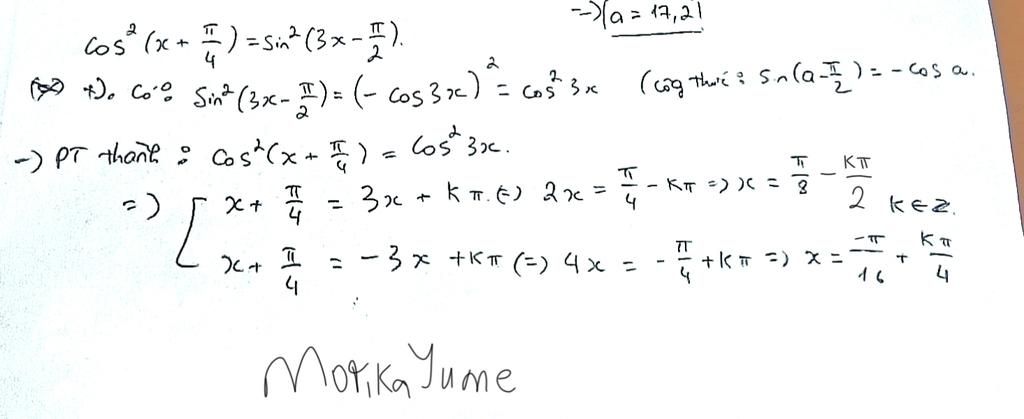 =>|a = 17,2|
cos² (x + π/4) = sin² (3x - π/2).
Có: Sin² (3x - π/2) = (- cos 3x)² = cos² 3x (công thức: Sin(a - π/2) = - cos a.
-> PT thành: cos² (x + π/4) = cos² 3x.
=> [ x + π/4 = 3x + kπ. (=) 2x = π/4 - kπ => x = π/8 - kπ/2 k ∈ Z.
x + π/4 = -3x + kπ (=) 4x = -π/4 + kπ => x = -π/16 + kπ/4
Morika Yume